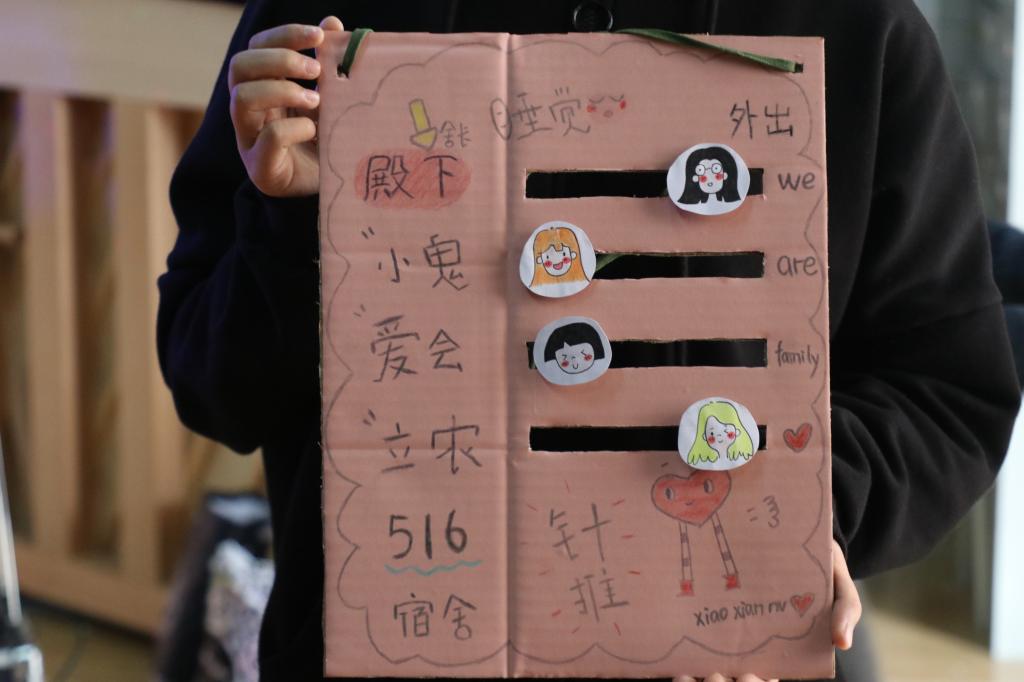 睡觉 外出
舍长
殿下
we
小鬼
are
爱会
family
立农
516
宿舍
针
推
xiao xian nv